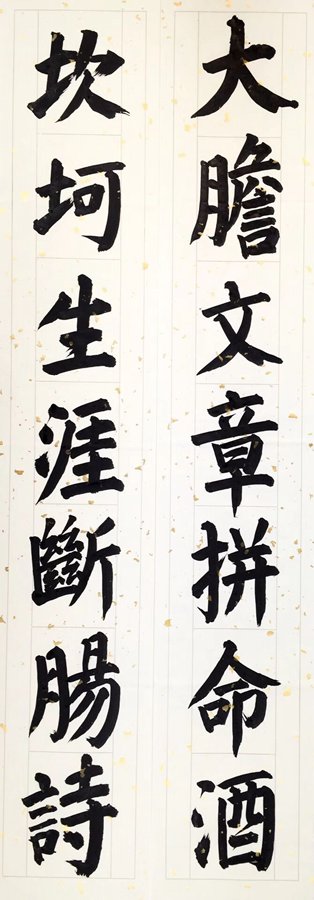 大膽文章拼命酒
坎坷生涯斷腸詩